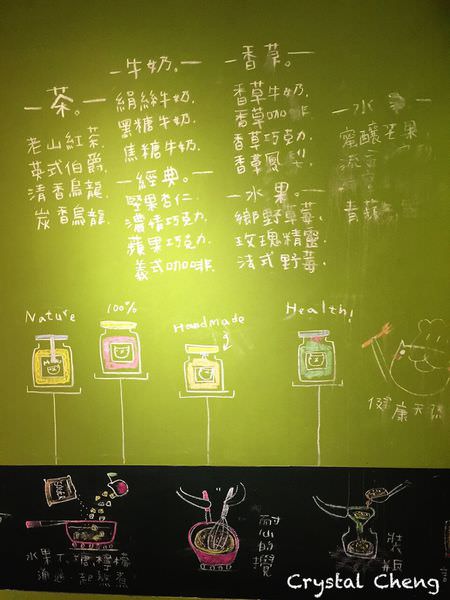 茶。
老山紅茶.
英式伯爵.
清香烏龍.
炭香烏龍.
牛奶。
絹絲牛奶.
黑糖牛奶.
焦糖牛奶.
經典。
堅果杏仁.
濃情巧克力.
蘋果巧克力.
義式咖啡.
香草。
香草牛奶.
香草咖啡.
香草巧克力.
香草鳳梨.
水果。
鄉野草莓、
玫瑰精蜜.
法式野莓.
水
蜜釀芒果.
青蘋
Nature
100%
Handmade
Health!
健康天
水果丁、糖、檸檬
一起熬煮
耐心的攪
裝瓶
Crystal Cheng